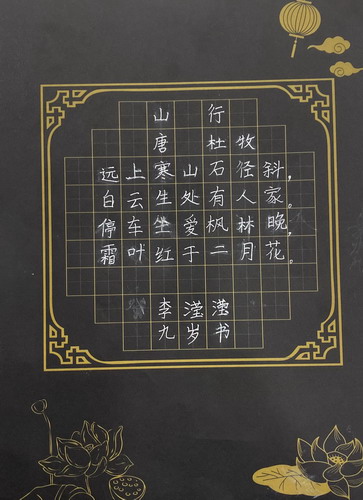 山行
唐 杜牧
远上寒山石径斜，
白云生处有人家。
停车坐爱枫林晚，
霜叶红于二月花。
李滢滢
九岁书